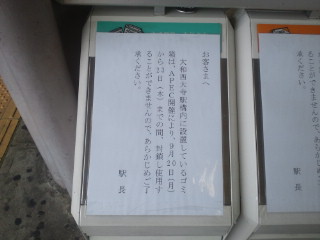 お客さまへ
大和西大寺駅構内に設置しているゴミ
箱は、APEC開催により、9月20日(月)
から23日(木)までの間、封鎖し使用す
ることができませんので、あらかじめご了
承ください。
駅長